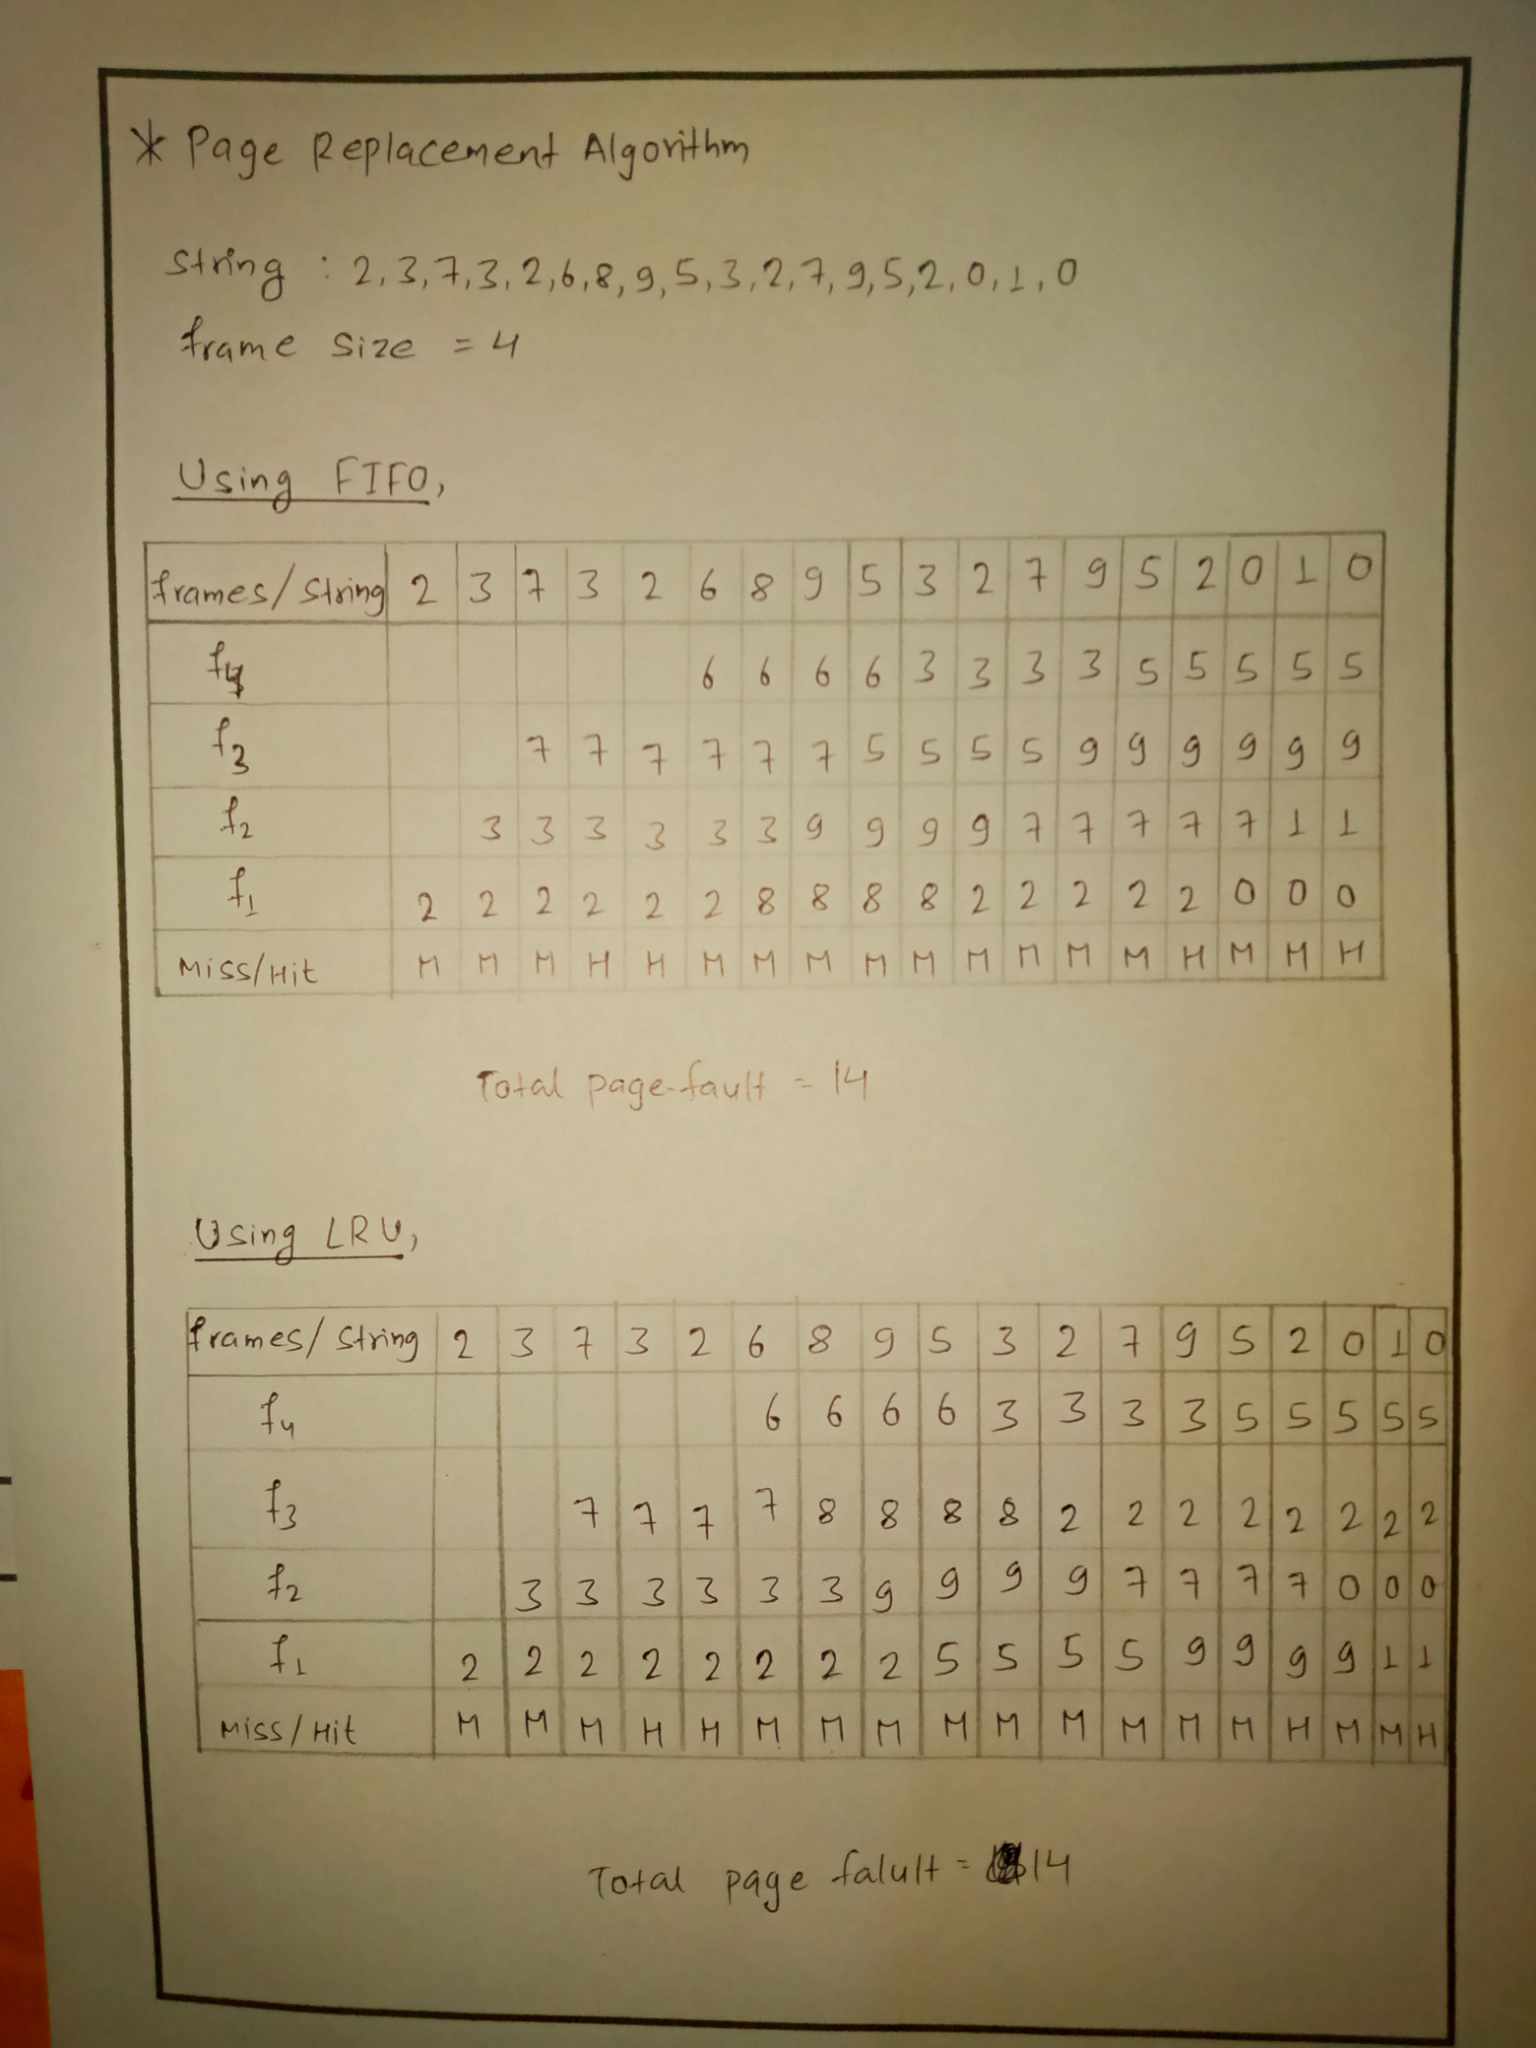 * Page Replacement Algorithm
string : 2,3,7,3,2,6,8,9,5,3,2,7,9,5,2,0,1,0
frame size = 4
Using FIFO,
frames/string 2 3 7 3 2 6 8 9 5 3 2 7 9 5 2 0 1 0
f4 6 6 6 6 3 3 3 3 5 5 5 5 5
f3 7 7 7 7 7 7 5 5 5 5 9 9 9 9 9 9
f2 3 3 3 3 3 3 9 9 9 9 7 7 7 7 7 1 1
f1 2 2 2 2 2 2 8 8 8 8 2 2 2 2 2 0 0 0
Miss/Hit M M M H H M M M M M M M M M H M M H
Total page-fault = 14
Using LRU,
frames/string 2 3 7 3 2 6 8 9 5 3 2 7 9 5 2 0 1 0
f4 6 6 6 6 3 3 3 3 5 5 5 5 5
f3 7 7 7 7 8 8 8 8 2 2 2 2 2 2 2 2
f2 3 3 3 3 3 3 9 9 9 9 7 7 7 7 0 0 0
f1 2 2 2 2 2 2 2 2 5 5 5 5 9 9 9 9 1 1
Miss/Hit M M M H H M M M M M M M M M H M M H
Total page falult = 14